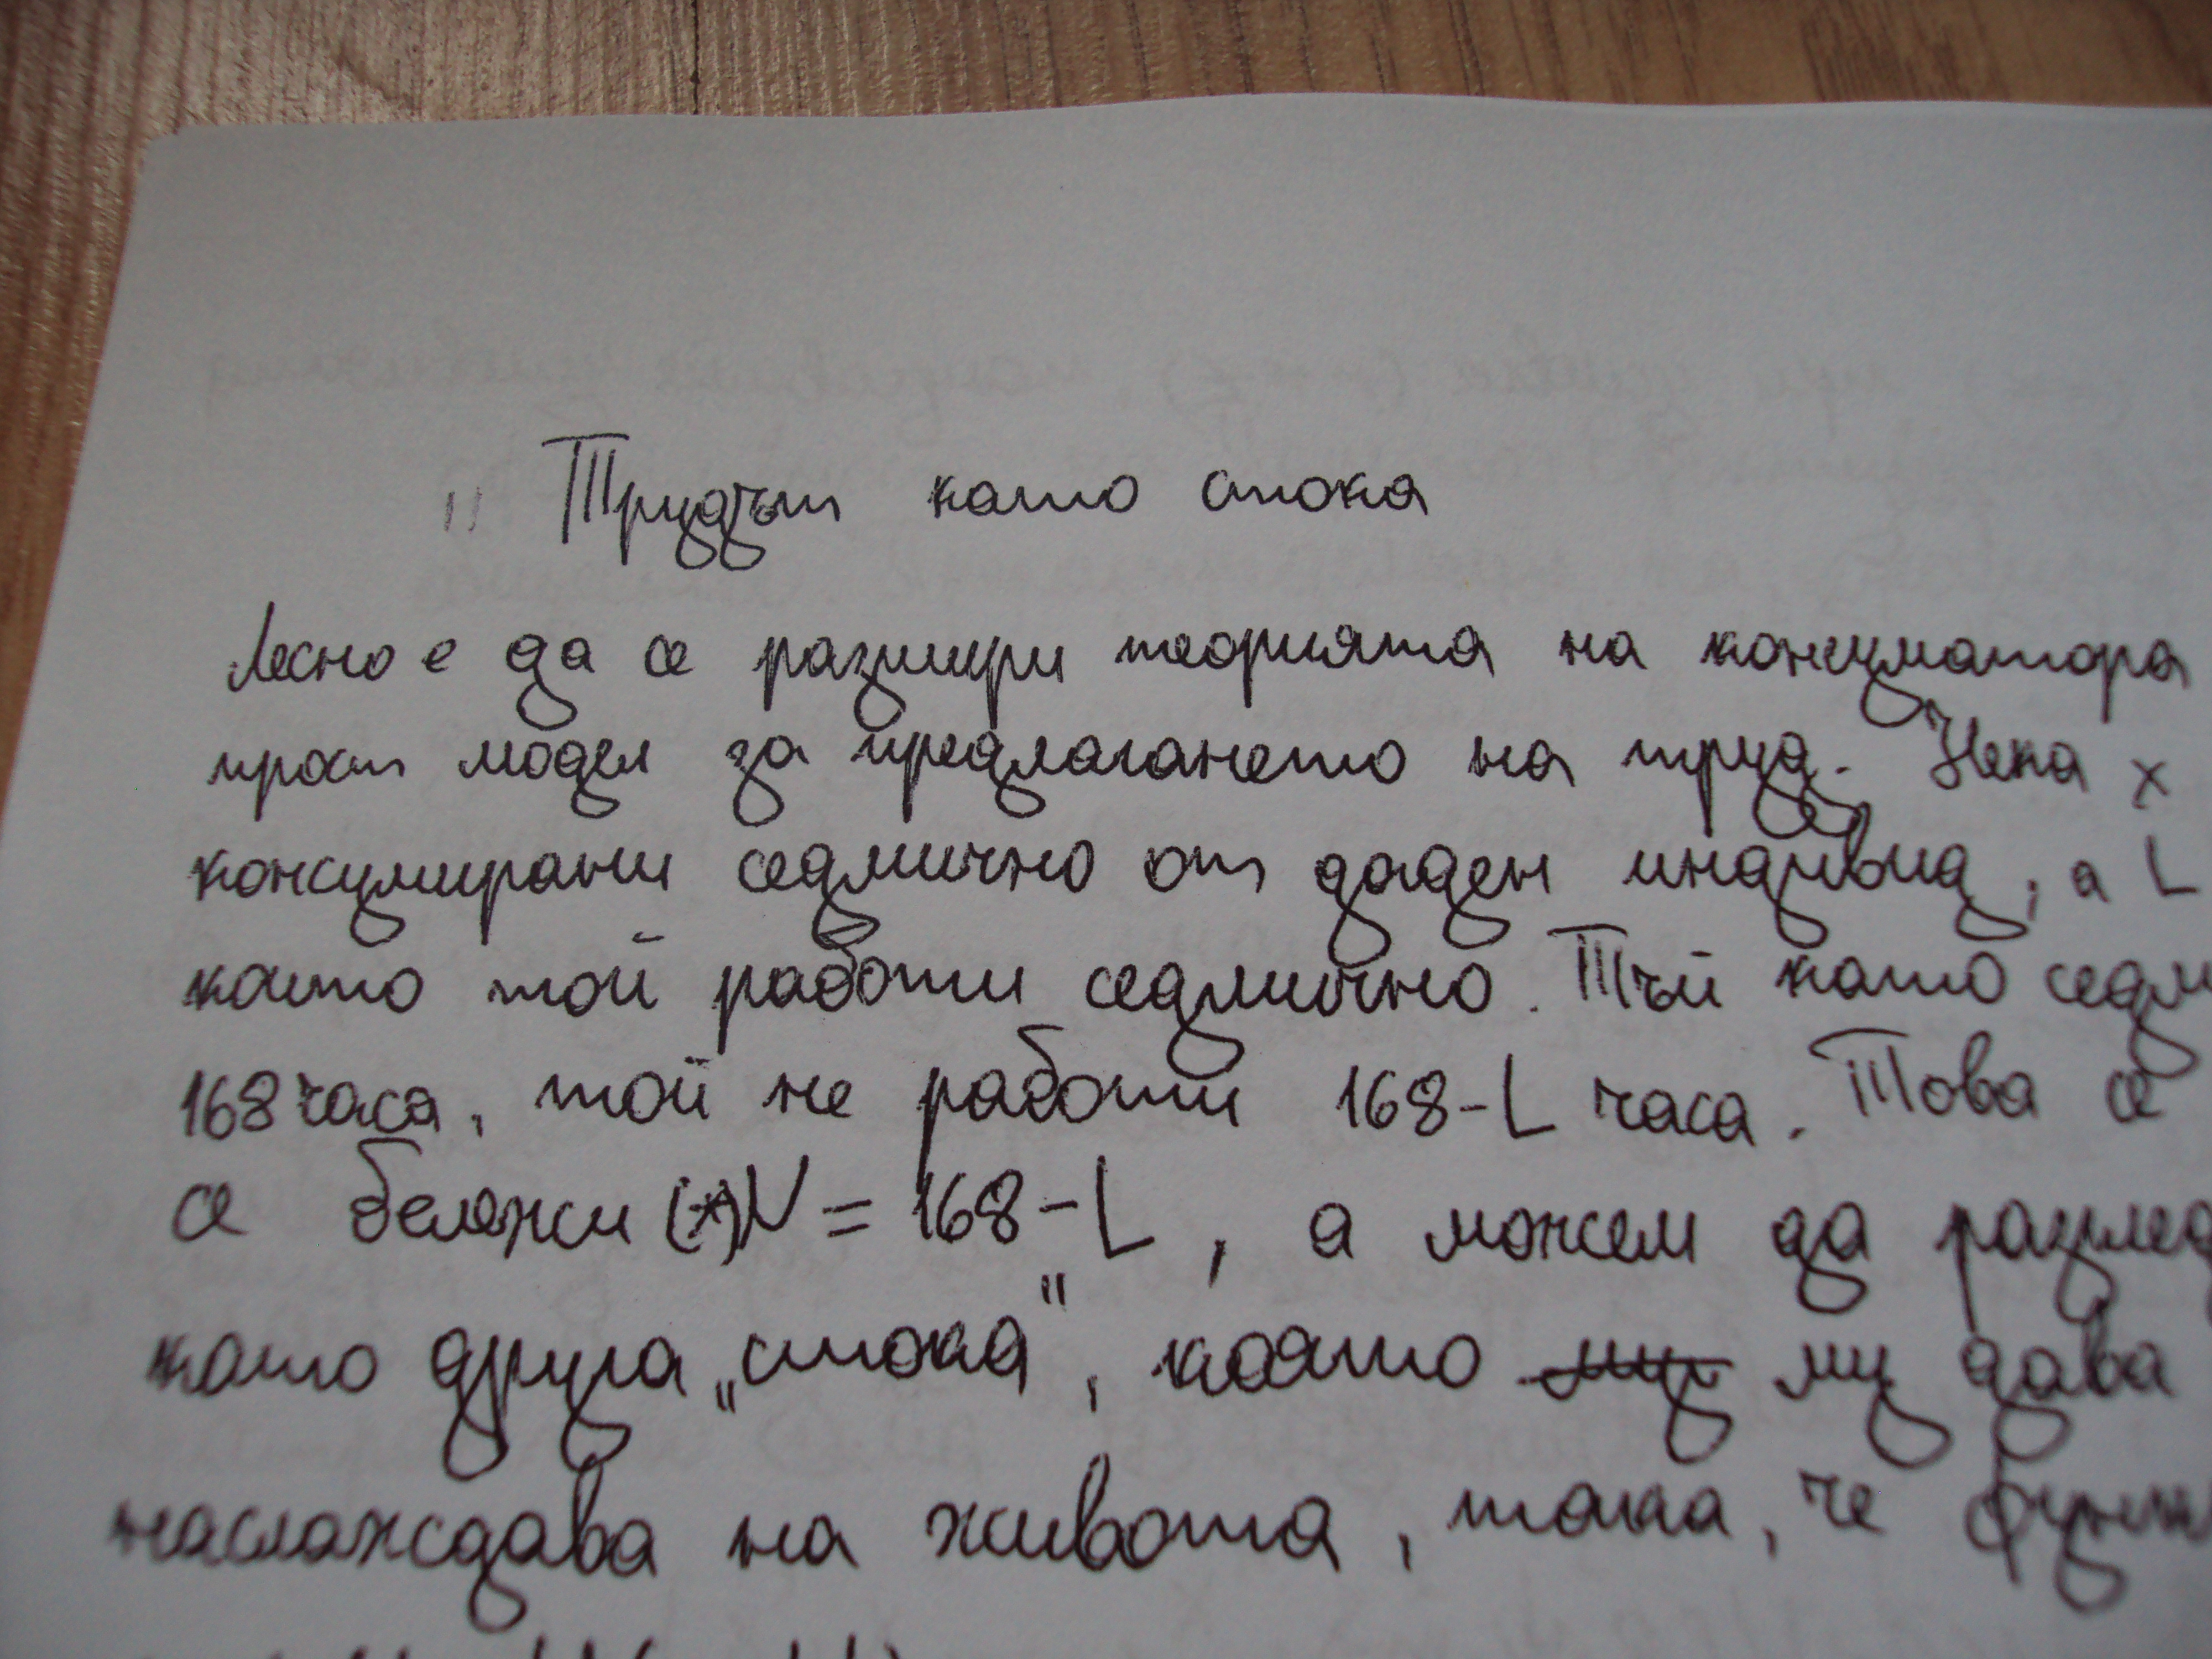 " Трудът като стока
Лесно е да се разшири теорията на консуматора
прост модел за предлагането на труд. Нека x
консумирани седмично от даден индивид, а L
които той работи седмично. Тъй като седм
168 часа, той не работи 168-L часа. Това се
се бележи (*) V = 168 - L, а можем да разглед
като друга „стока", която му дава
наслаждава на живота, така, че функ